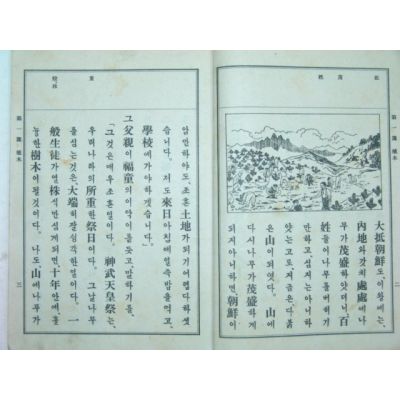 第一課 植木
二
大抵朝鮮도, 이왕에는,
內地와갓치處處에나
무가茂盛하얏더니, 百
姓들이나무를버히기
만하고, 심지는아니하
얏는고로지금은다
은山이되엿다. 山에
다시나무가茂盛하게
되지아니하면, 朝鮮이
암만하야도, 조흔土地가되기어렵다하셧
습니다. 저도來日아침에일즉밥을먹고,
學校에가야하겟습니다.」
그父親이福童의이약이를듯고, 말하기를,
「그것은매우조흔일이다. 神武天皇祭는,
우리나라의所重한祭日이다. 그날나무
를심는것은, 大端히잘생각한일이다. 一
般生徒가열株식만심게되면, 十年안에, 훌
늉한樹木이될것이다. 나도山에나무가
第一課 植木
三